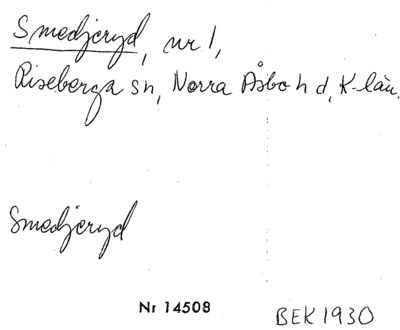 Smedjeryd, nr 1,
Riseberga sn, Norra Åsbo hd, K-län.
Smedjeryd
Nr 14508
BEK 1930